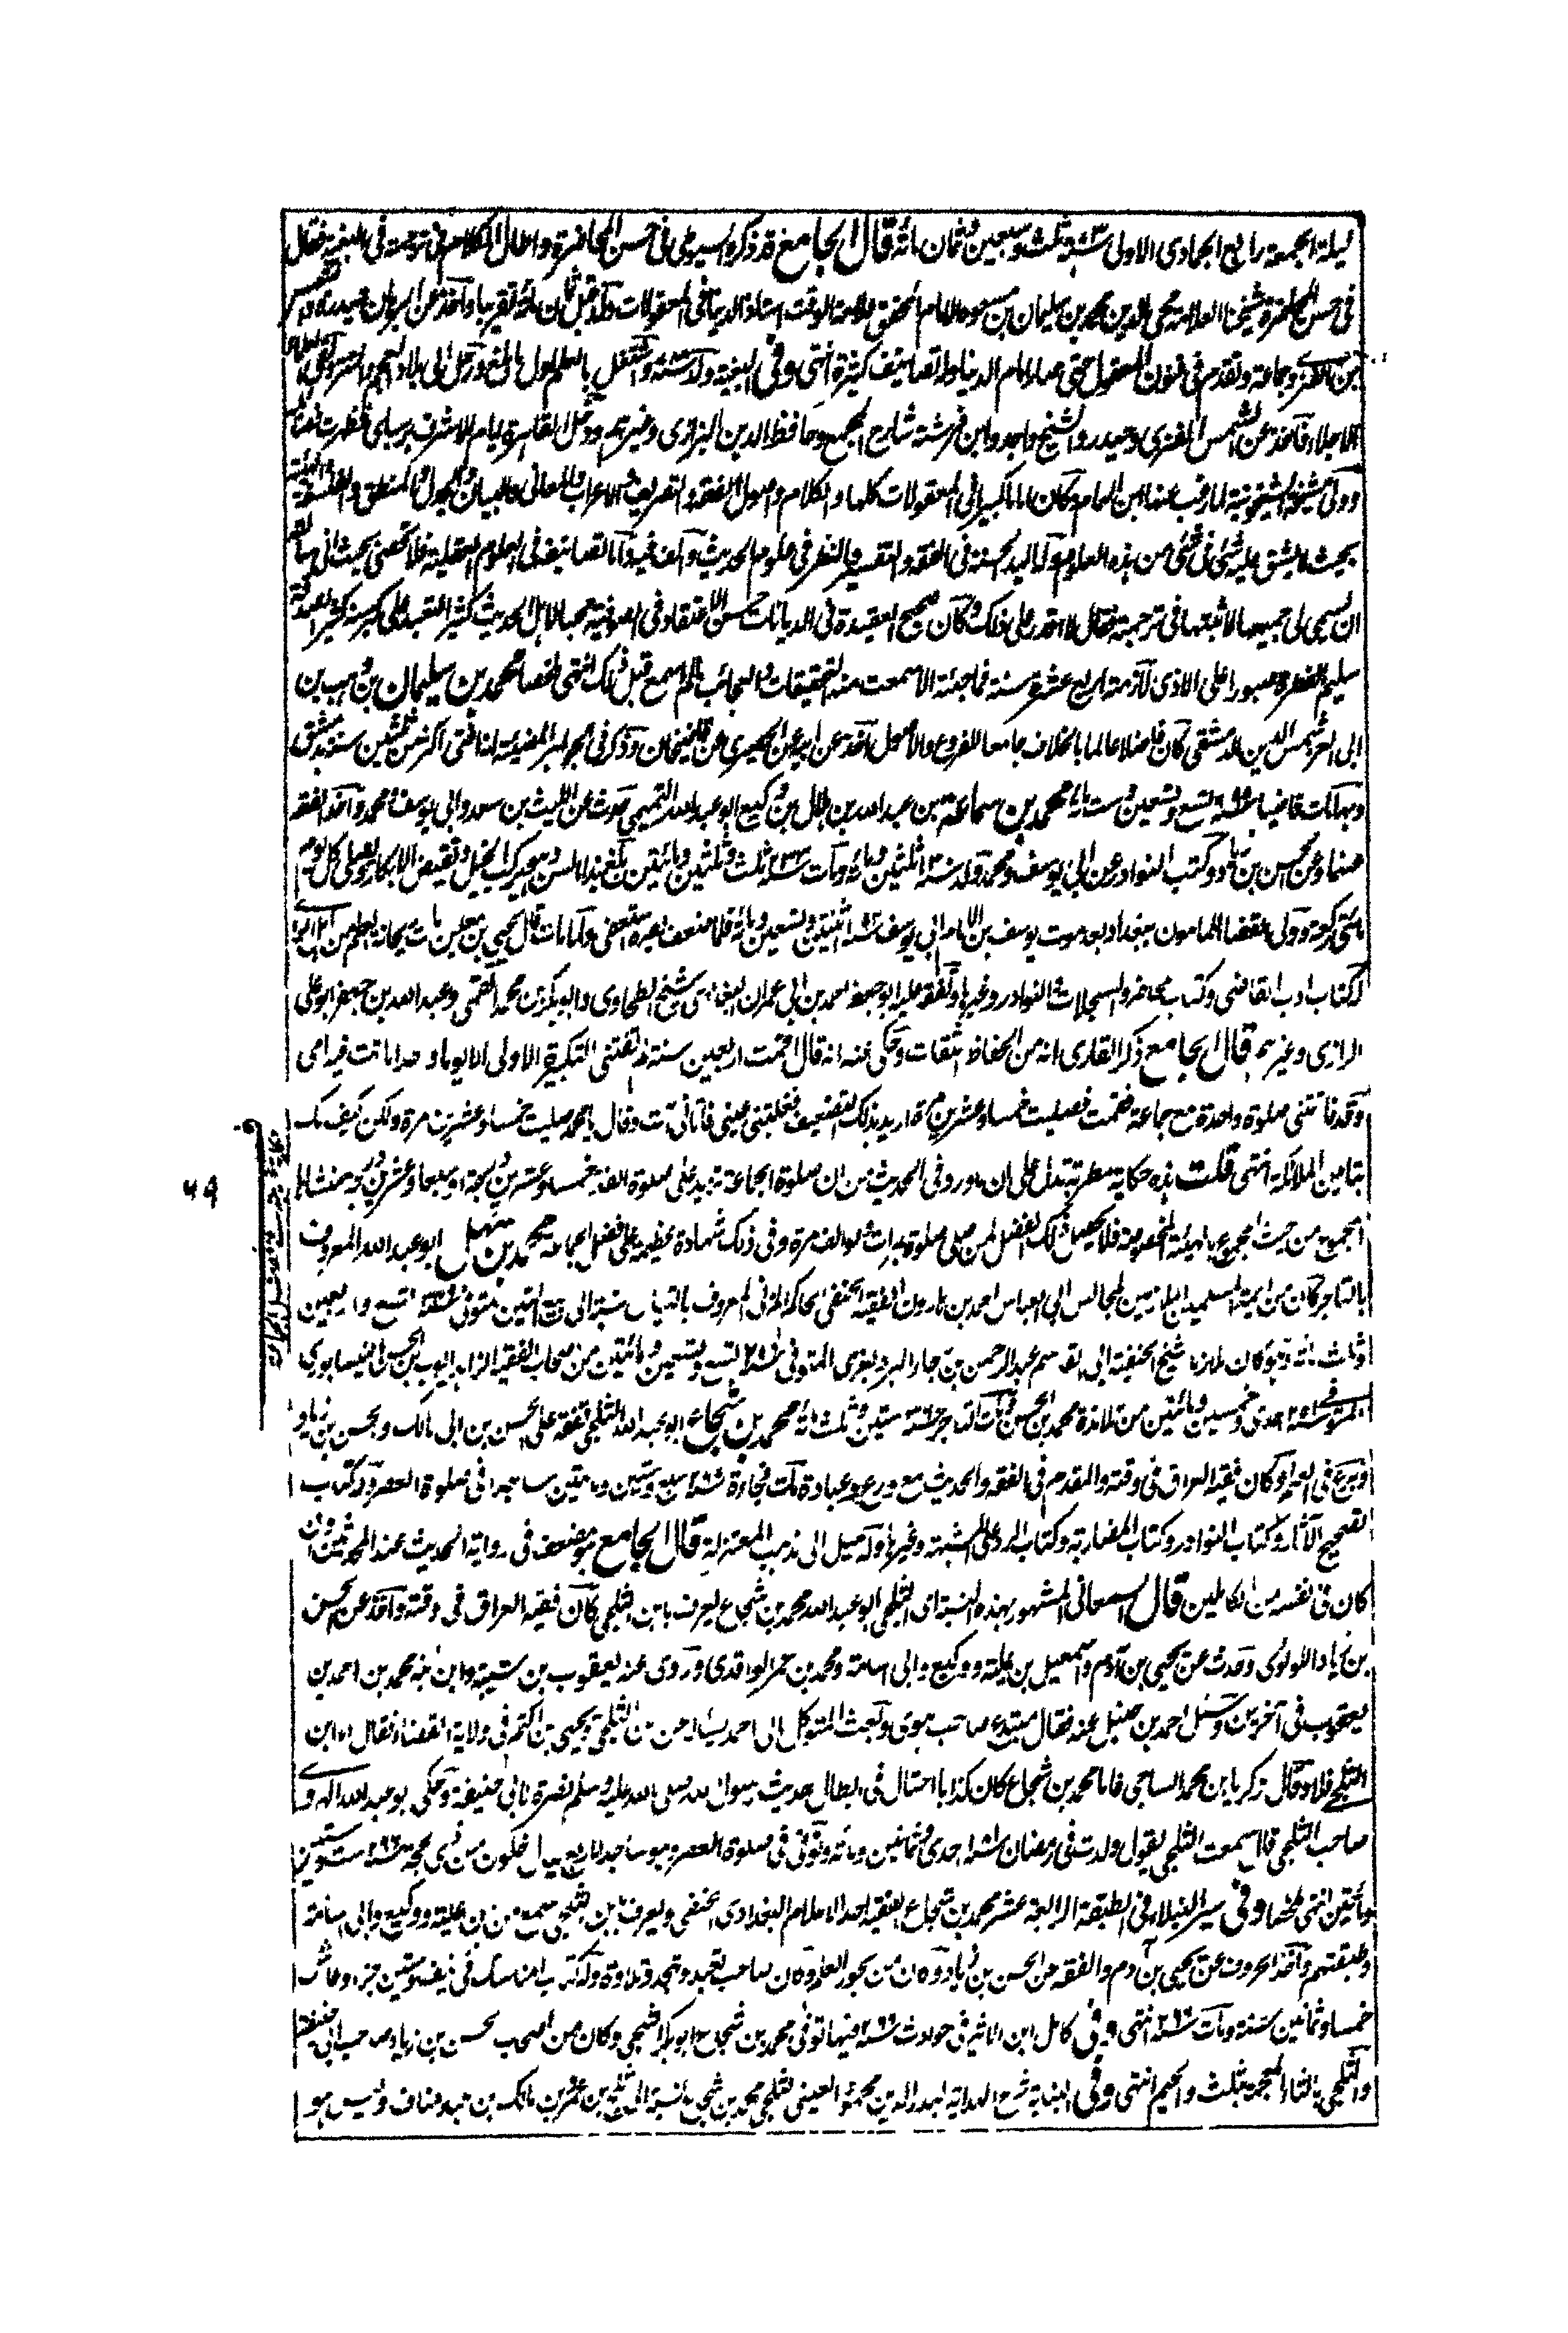 ليلة الجمعة رابع الجمادى الاولى سنة ٨٧٣ ثلث وسبعين وثمان مائة قال الجامع قد ذكره السيوطى فى حسن المحاضرة واطال الكلام فى ترجمته فى البغية فقال
فى حسن المحاضرة شيخنا العلامة محى الدين محمد بن سليمان بن مسعود الامام المحقق علامة الوقت استاذ الدنيا فى المعقولات ولد قبل ثمان مائة تقريبا واخذ عن البرهان حيدرة والشمس
بن الفنرى وجماعة وتقدم فى فنون المعقول حتى صار امام الدنيا وله تصانيف كثيرة انتهى وفى البغية ولد سنة واشتغل بالعلم اول ما بلغ ورحل الى بلاد العجم والتتر ولقى العلماء
الاجلاء فاخذ عن الشمس الفنرى وحيدرو الشيخ واجد وابن فرشته شارح المجمع وحافظ الدين البزازى وغيرهم ودخل القاهرة ايام الاشرف برسباى فظهرت فضائله
وولى مشيخة الشيخونية لما رغب عنها ابن الهمام وكان اماما كبيرا فى المعقولات كلها والكلام واصول الفقه والتصريف والاعراب والمعانى والبيان والجدل والمنطق والفلسفة والهيئة
بحيث لا يشق عليه شئ فى شئ من هذه العلوم وله اليد الحسنة فى الفقه والتفسير والنظر فى علوم الحديث والف فيه واما تصانيفه فى العلوم العقلية فلا تحصى بحيث انى سالته
ان يسمى لى جميعها لاثبتها فى ترجمته فقال لا اقدر على ذلك وكان صحيح العقيدة فى الديانات حسن الاعتقاد فى الصوفية محبا لاهل الحديث كثير التعبد على كبر سنه كثير الصدقة
سليم الفطرة صبورا على الاذى لازمته اربع عشرة سنة فما جئته الا سمعت منه التحقيقات والعجائب ما لم اسمع قبل ذلك انتهى ملخصا محمد بن سليمان بن وهيب بن
ابى العز شمس الدين الدمشقى كان فاضلا عالما بالخلاف جامعا للفروع والاصول اخذ عن ابيه عن الحصيرى عن قاضيخان وذكر فى الجواهر المضيئة انه افتى اكثر من ثلثين سنة بدمشق
وبها مات قاضيا سنة ٦٩٩ تسع وتسعين وست مائة محمد بن سماعة بن عبد الله بن هلال بن وكيع ابو عبد الله التميمى حدث عن الليث بن سعد وابى يوسف ومحمد واخذ الفقه
عنهما وعن الحسن بن زياد وكتب النوادر عن ابى يوسف ومحمد ولد سنة ١٣٠ ثلثين ومائة ومات سنة ٢٣٣ ثلث وثلثين ومائتين بلغ هذا السن وهو يركب الخيل ويفتض الابكار ويصلى كل يوم
مائتى ركعة وولى القضاء للمامون ببغداد بعد موت يوسف بن الامام ابى يوسف سنة ١٩٢ اثنتين وتسعين ومائة فلما ضعف بصره استعفى ولما مات قال يحيى بن معين مات ريحانة العلم من اهل الراى
له كتاب ادب القاضى وكتاب محاضر والسجلات والنوادر وغيرها وتفقه عليه ابو جعفر احمد بن ابى عمران البغدادى شيخ الطحاوى وابو بكر بن محمد القمى وعبد الله بن جعفر ابو على
الرازى وغيرهم قال الجامع ذكر القارى انه من الحفاظ الثقات وحكى عنه انه قال اقمت اربعين سنة لم تفتنى التكبيرة الاولى الا يوما واحدا ماتت فيه امى
وقد فاتتنى صلوة واحدة مع جماعة فقمت فصليت خمسا وعشرين مرة اريد بذلك التضعيف فغلبتنى عينى فاتانى آت وقال يا محمد صليت خمسا وعشرين مرة ولكن كيف لك
بتامين الملائكة انتهى قلت هذه حكاية مطربة تدل على ان ما ورد فى الحديث من ان صلوة الجماعة تزيد على صلوة الفذ خمسا وعشرين درجة او سبعا وعشرين درجة منشاه
المجموع من حيث المجموع بالهيئة المخصوصة فلا يحصل ذلك الفضل لمن صلى صلوة مرات ولو الف مرة وفى ذلك شهادة عظيمة على فضل الجماعة محمد بن سهل ابو عبد الله المعروف
بالتاجر كان من ايمة المسلمين الملازمين لمجالس ابى العباس احمد بن هارون الفقيه الحنفى الحاكم المزنى المعروف بالتبان المتوفى تسع واربعين
وثلث مائة وهو كان ملازما شيخ الحنفية ابى القاسم عبد الرحمن بن جار البردبغزى المتوفى سنة تسع وتسعين ومائتين من اصحاب الفقيه الزاهد ايوب بن الحسن النيسابورى
المتوفى سنة ٢٥١ احدى وخمسين ومائتين من تلامذة محمد بن الحسن ومات التاجر سنة ٣٦٠ ستين وثلث مائة محمد بن شجاع ابو عبد الله الثلجى تفقه على الحسن بن ابى مالك والحسن بن زياد
وبرع فى العلم وكان فقيه العراق فى وقته والمقدم فى الفقه والحديث مع ورع وعبادة مات فجاءة سنة ٢٦٧ سبع وستين ومائتين ساجدا فى صلوة العصر وله كتاب
تصحيح الآثار وكتاب النوادر وكتاب المضاربة وكتاب الرد على المشبهة وغيرها وله ميل الى مذهب المعتزلة قال الجامع هو مضعف فى رواية الحديث عند المحدثين وان
كان فى نفسه من الكاملين قال السمعانى المشهور بهذه النسبة اى الثلجى ابو عبد الله محمد بن شجاع يعرف بابن الثلجى كان فقيه العراق فى وقته واخذ عن الحسن
بن زياد اللولوى وحدث عن يحيى بن آدم واسمعيل بن علية ووكيع وابى اسامة ومحمد بن عمر الواقدى وروى عنه يعقوب بن شيبة وابن ابنه محمد بن احمد بن
يعقوب فى آخرين وسئل احمد بن حنبل عنه فقال مبتدع صاحب هوى وبعث المتوكل الى احمد يساله عن ابن الثلجى ويحيى بن اكثم فى ولاية القضاء فقال اما ابن
الثلجى فلا وقال زكريا بن محمد الساجى فاما محمد بن شجاع كان كذابا احتال فى ابطال حديث رسول الله صلى الله عليه وسلم نصرة لابى حنيفة وحكى ابو عبد الله الهروى
صاحب الثلجى قال سمعت الثلجى يقول ولدت فى رمضان سنة ١٨١ احدى وثمانين ومائة وتوفى فى صلوة العصر وهو ساجد لاربع ليال خلون من ذى الحجة سنة ٢٦٦ ست وستين
ومائتين انتهى ملخصا وفى سير النبلاء فى الطبقة الرابعة عشر محمد بن شجاع الفقيه احد الاعلام البغدادى الحنفى ويعرف بابن الثلجى سمع من ابن علية ووكيع وابى اسامة
وطبقتهم واخذ الحروف عن يحيى بن آدم والفقه عن الحسن بن زياد وكان من بحور العلم وكان صاحب تعبد وتهجد وتلاوة وله كتاب المناسك فى نيف وستين جزءا وعاش
خمسا وثمانين سنة ومات سنة ٢٦٦ انتهى وفى كامل ابن الاثير فى حوادث سنة ٢٦٦ فيها توفى محمد بن شجاع ابو بكر الثلجى وكان من اصحاب الحسن بن زياد صاحب ابى حنيفة
والثلجى بالثاء المعجمة بثلث والجيم انتهى وفى البناية شرح الهداية لبدر الدين محمود العينى الثلجى محمد بن شجاع بالنسبة الى ثلج بن عمرو بن مالك بن عبد مناف وليس هو
٦٩